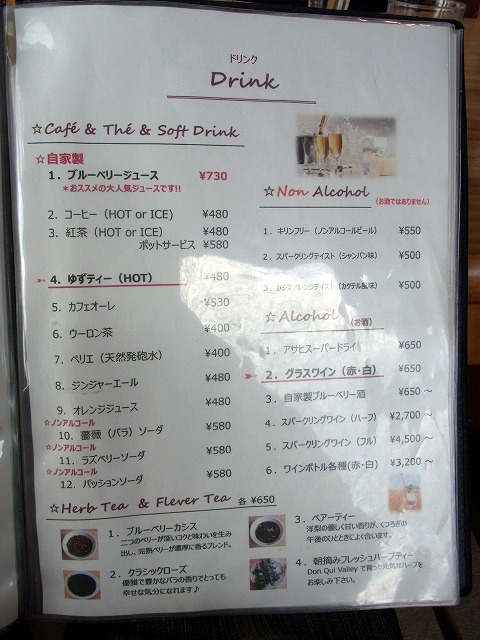 ドリンク
Drink
☆Café & Thé & Soft Drink
☆自家製
1．ブルーベリージュース ¥730
＊おススメの大人気ジュースです!!
2．コーヒー（HOT or ICE） ¥480
3．紅茶（HOT or ICE） ¥480
ポットサービス ¥580
4．ゆずティー（HOT） ¥480
5．カフェオーレ ¥530
6．ウーロン茶 ¥400
7．ペリエ（天然発砲水） ¥400
8．ジンジャーエール ¥480
9．オレンジジュース ¥480
☆ノンアルコール
10．薔薇（バラ）ソーダ ¥580
☆ノンアルコール
11．ラズベリーソーダ ¥580
☆ノンアルコール
12．パッションソーダ ¥580
☆Non Alcohol（お酒ではありません）
1．キリンフリー（ノンアルコールビール） ¥550
2．スパークリングテイスト（シャンパン味） ¥500
3．カシスオレンジテイスト（カクテル風味） ¥500
☆Alcohol （お酒）
1．アサヒスーパードライ ¥650
2．グラスワイン（赤・白） ¥650
3．自家製ブルーベリー酒 ¥650 ～
4．スパークリングワイン（ハーフ） ¥2,700 ～
5．スパークリングワイン（フル） ¥4,500 ～
6．ワインボトル各種（赤・白） ¥3,200 ～
☆Herb Tea & Flever Tea 各 ¥650
1．ブルーベリーカシス
二つのベリーが深いコクと味わいを生み
出し、完熟ベリーが濃厚に香るブレンド。
2．クラシックローズ
優雅で豊かなバラの香りでとっても
幸せな気分になれます♪
3．ペアーティー
洋梨の優しく甘い香りが、くつろぎの
午後のひとときによく合います。
4．朝摘みフレッシュハーブティー
Don Qui Valley で育った元気なハーブを
お楽しみ下さい。